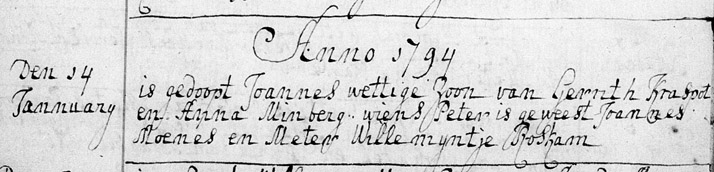 Anno 1794
Den 14
Jannuary
is gedoopt Joannes wettige zoon van Gerrith
en Anna Minberg wiens Peter is geweest Joannes
Moenes en Meter Willemyntje Roskam